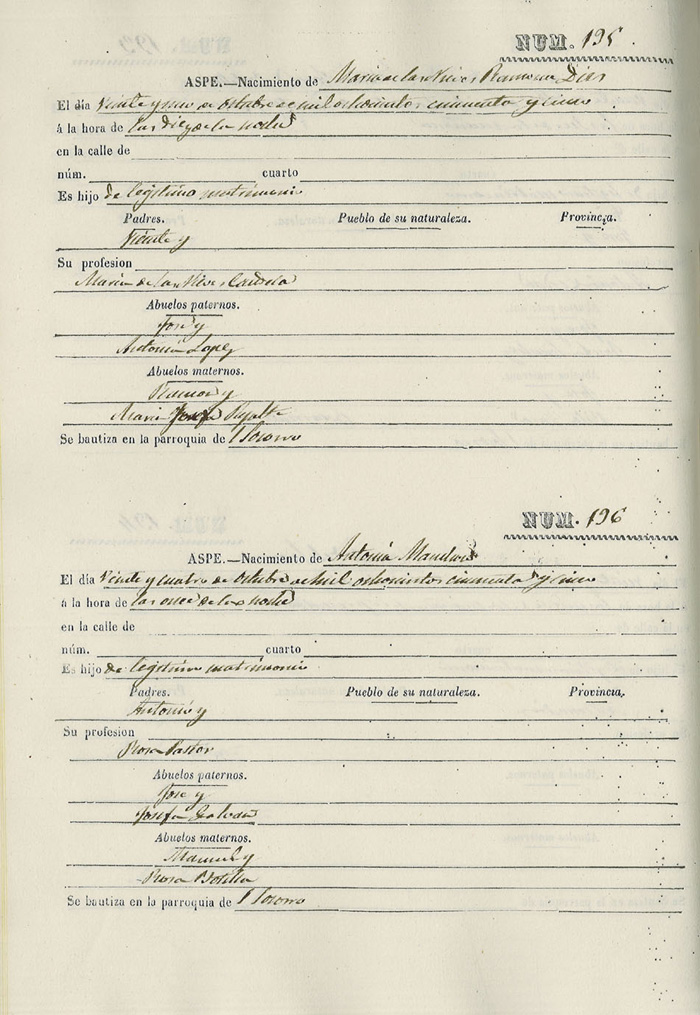 NUM. 195
ASPE.—Nacimiento de Maria de las Nieves Ramona Dias
El día Veinte y uno de octubre de mil ochocientos cincuenta y cinco
á la hora de las diez de la noche
en la calle de
núm. cuarto
Es hijo de legitimo matrimonio
Padres. Pueblo de su naturaleza. Provincia.
Vicente y
Su profesion
Maria de las Nieves Candela
Abuelos paternos.
José y
Antonia Lopez
Abuelos maternos.
Ramon y
Maria Josefa
Se bautiza en la parroquia de l Socorro
NUM. 196
ASPE.—Nacimiento de Antonia
El día Veinte y cuatro de octubre de mil ochocientos cincuenta y cinco
á la hora de las once de la noche
en la calle de
núm. cuarto
Es hijo de legitimo matrimonio
Padres. Pueblo de su naturaleza. Provincia.
Antonio y
Su profesion
Rosa Pastor
Abuelos paternos.
José y
Josefa
Abuelos maternos.
Manuel y
Rosa Botella
Se bautiza en la parroquia de l Socorro